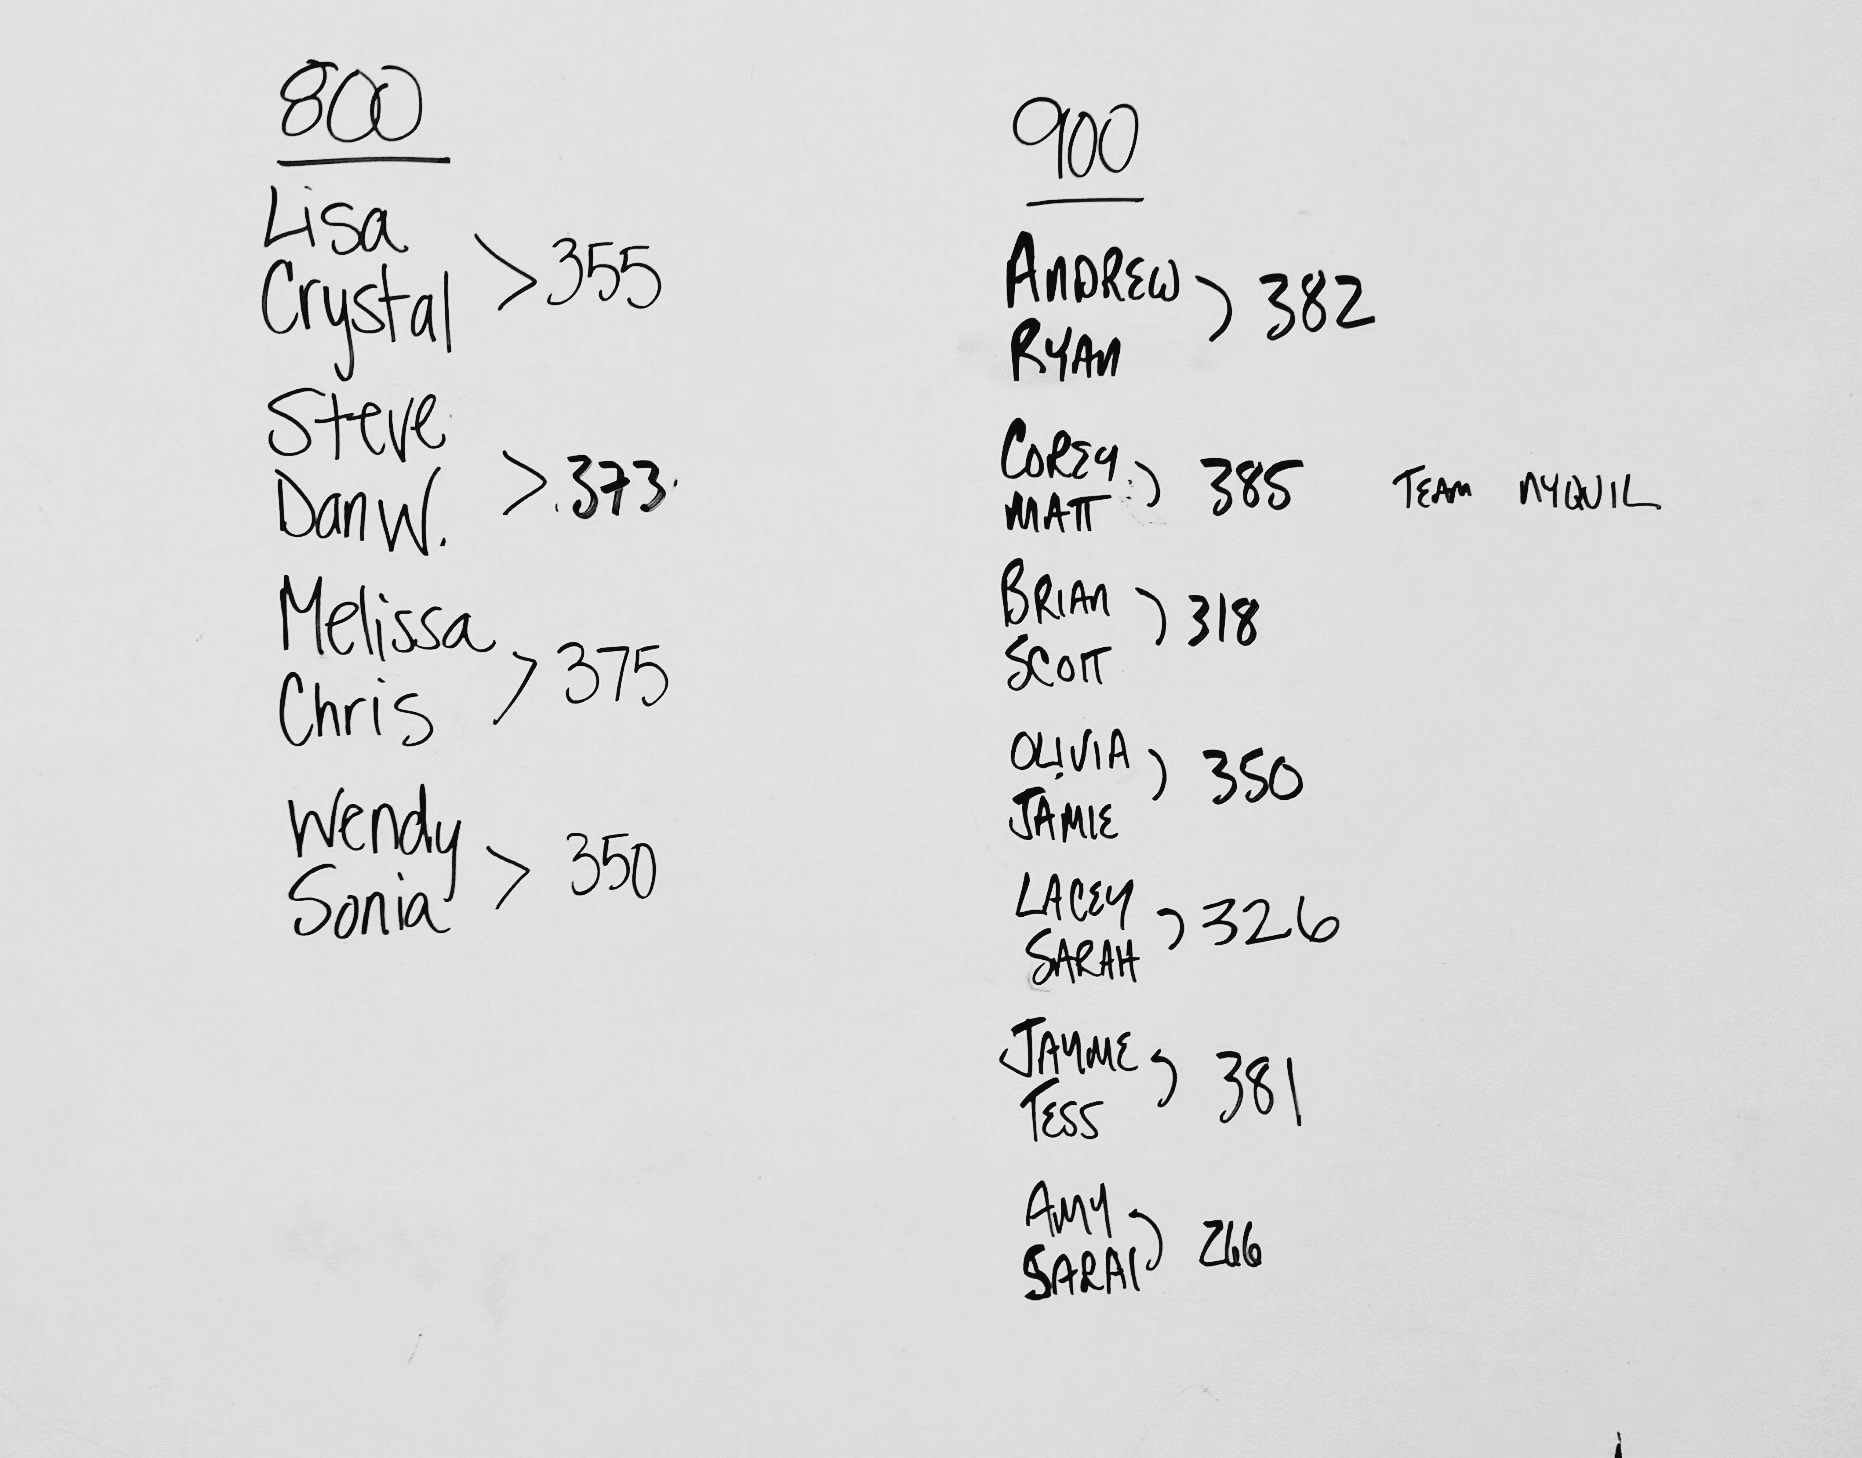 800
Lisa
Crystal > 355
Steve
Dan W. > 373
Melissa
Chris > 375
Wendy
Sonia > 350
900
ANDREW
RYAN ) 382
COREY
MATT ) 385 TEAM NYQUIL
BRIAN
SCOTT ) 318
OLIVIA
JAMIE ) 350
LACEY
SARAH ) 326
JAYME
TESS ) 381
AMY
SARAI ) 266